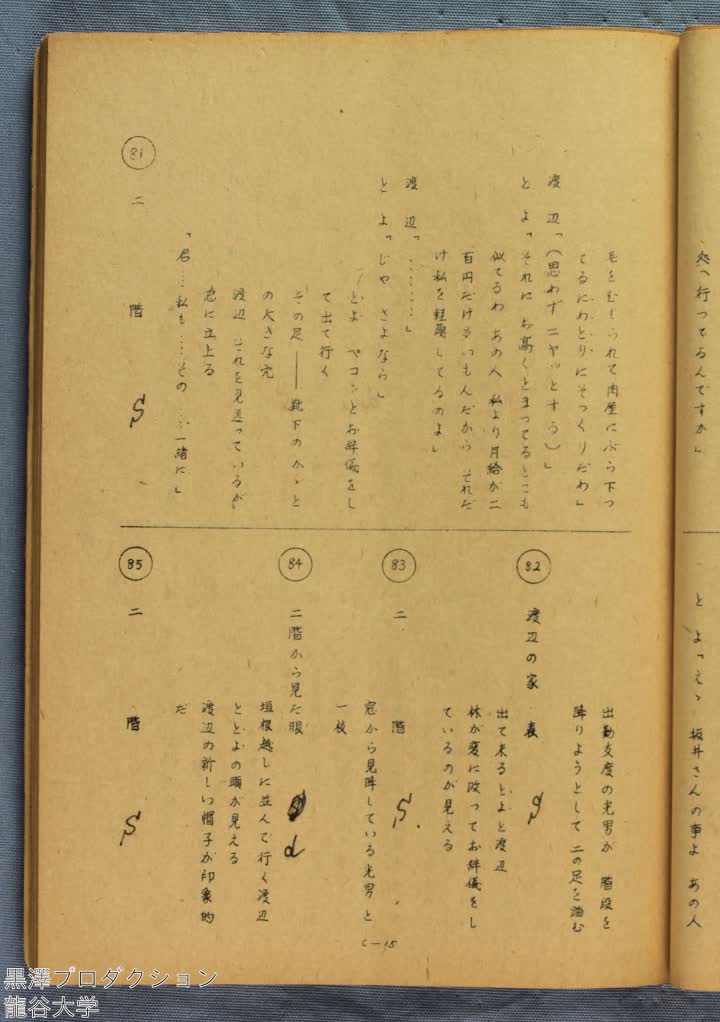 処へ行ってるんですか」
とよ「えゝ 坂井さんの事よ あの人
毛をむしられて肉屋にぶら下っ
てるにわとりにそっくりだわ」
渡辺「(思わずニヤッとする)」
とよ「それに お高くとまってるとこも
似てるわ あの人 私より月給が二
百円だけ多いもんだから それだ
け私を軽蔑してるのよ」
渡辺「…………」
とよ「じゃ さよなら」
とよ ペコンとお辞儀をし
て出て行く
その足――靴下のかゝと
の大きな穴
渡辺 それを見送っているが
急に立上る
「君……私も……その……一緒に」
81 二階 S
出勤支度の光男が 階段を
降りようとして 二の足を踏む
82 渡辺の家 表 S
出て来るとよと渡辺
休が変に改ってお辞儀をし
ているのが見える
83 二階 S
窓から見降している光男と
一枝
84 二階から見た眼 d
垣根越しに並んで行く渡辺
ととよの頭が見える
渡辺の新しい帽子が印象的
だ
85 二階 S
C-15
黒澤プロダクション
龍谷大学